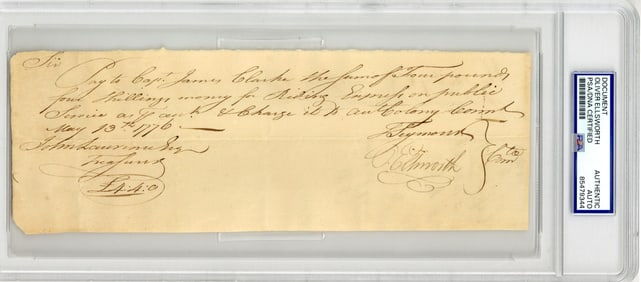 Sir
Pay to Capt. James Clarke the sum of four pounds
four shillings money for Riding Express on public
Service as pr acct. & Charge it to acct Colony Connt
May 13th 1776
T Seymour
John Lawrence Esqr
O Ellsworth
Comtee
Treasurer
£4:4:0
DOCUMENT
OLIVER ELLSWORTH
PSA/DNA CERTIFIED
PSA
AUTHENTIC
AUTO
85479344